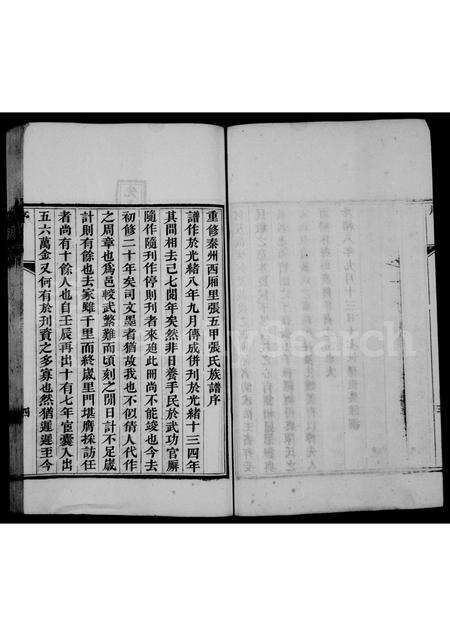 重修秦州西廂里張五甲張氏族譜序
譜作於光緒八年九月傳成併刊於光緒十三四年
其間相去已七閱年矣然非日養手民於武功官廨
隨作隨刊作停則刊者來廸此冊尚不能竣也今去
初修二十年矣司文墨者猶故我也不似倩人代作
之周章也為邑峻武繁難而頃刻之閒日計不足歲
計則有餘也去家雖千里而終歲里門堪膺採訪任
者尚有十餘人也自壬辰再出十有七年宦囊入出
五六萬金又何有於刊資之多寡也然猶遲遲至今
序
四